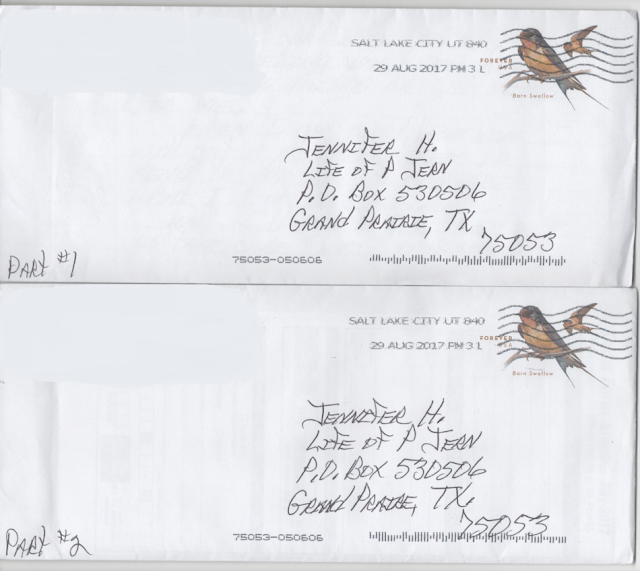 SALT LAKE CITY UT 840
29 AUG 2017 PM 3 L
FOREVER
USA
Barn Swallow
JENNIFER H.
LIFE OF P JERN
P.O. BOX 530506
GRAND PRAIRIE, TX
75053
PART #1
75053-050606
SALT LAKE CITY UT 840
29 AUG 2017 PM 3 L
FOREVER
USA
Barn Swallow
JENNIFER H.
LIFE OF P JERN
P.O. BOX 530506
GRAND PRAIRIE, TX.
75053
PART #2
75053-050606